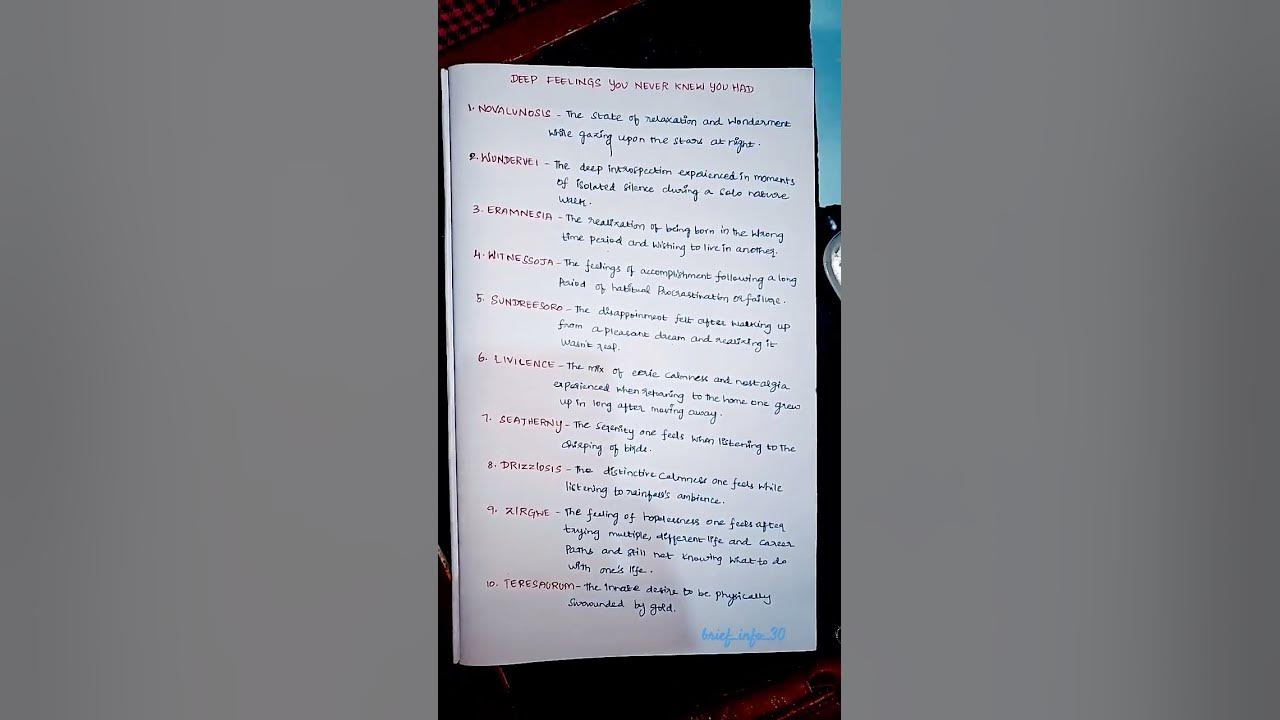 DEEP FEELINGS YOU NEVER KNEW YOU HAD
1. NOVALUNOSIS - The state of relaxation and wonderment
while gazing upon the stars at night.
2. WONDERVEI - The deep introspection experienced in moments
of isolated silence during a solo nature
walk.
3. ERAMNESIA - The realization of being born in the wrong
time period and wishing to live in another.
4. WITNESSOJA - The feelings of accomplishment following a long
Period of habitual Procrastination or failure.
5. SUNDREESORO - The disappoinment felt after wakking up
from a pleasant dream and realizing it
wasn't real.
6. LIVILENCE - The mix of eerie calmness and nostalgia
experienced when retuning to the home one grew
up in long after moving away.
7. SEATHERNY - The serenity one feels when listening to The
chirping of birds.
8. DRIZZLOSIS - The distinctive Calmness one feels while
listening to rainfall's ambience.
9. ZIRGWE - The feeling of hopelessness one feels after
trying multiple, different life and career
Paths and still not knowing what to do
with one's life.
10. TERESAURUM - The innate desire to be physically
surrounded by gold.
brief_info_30